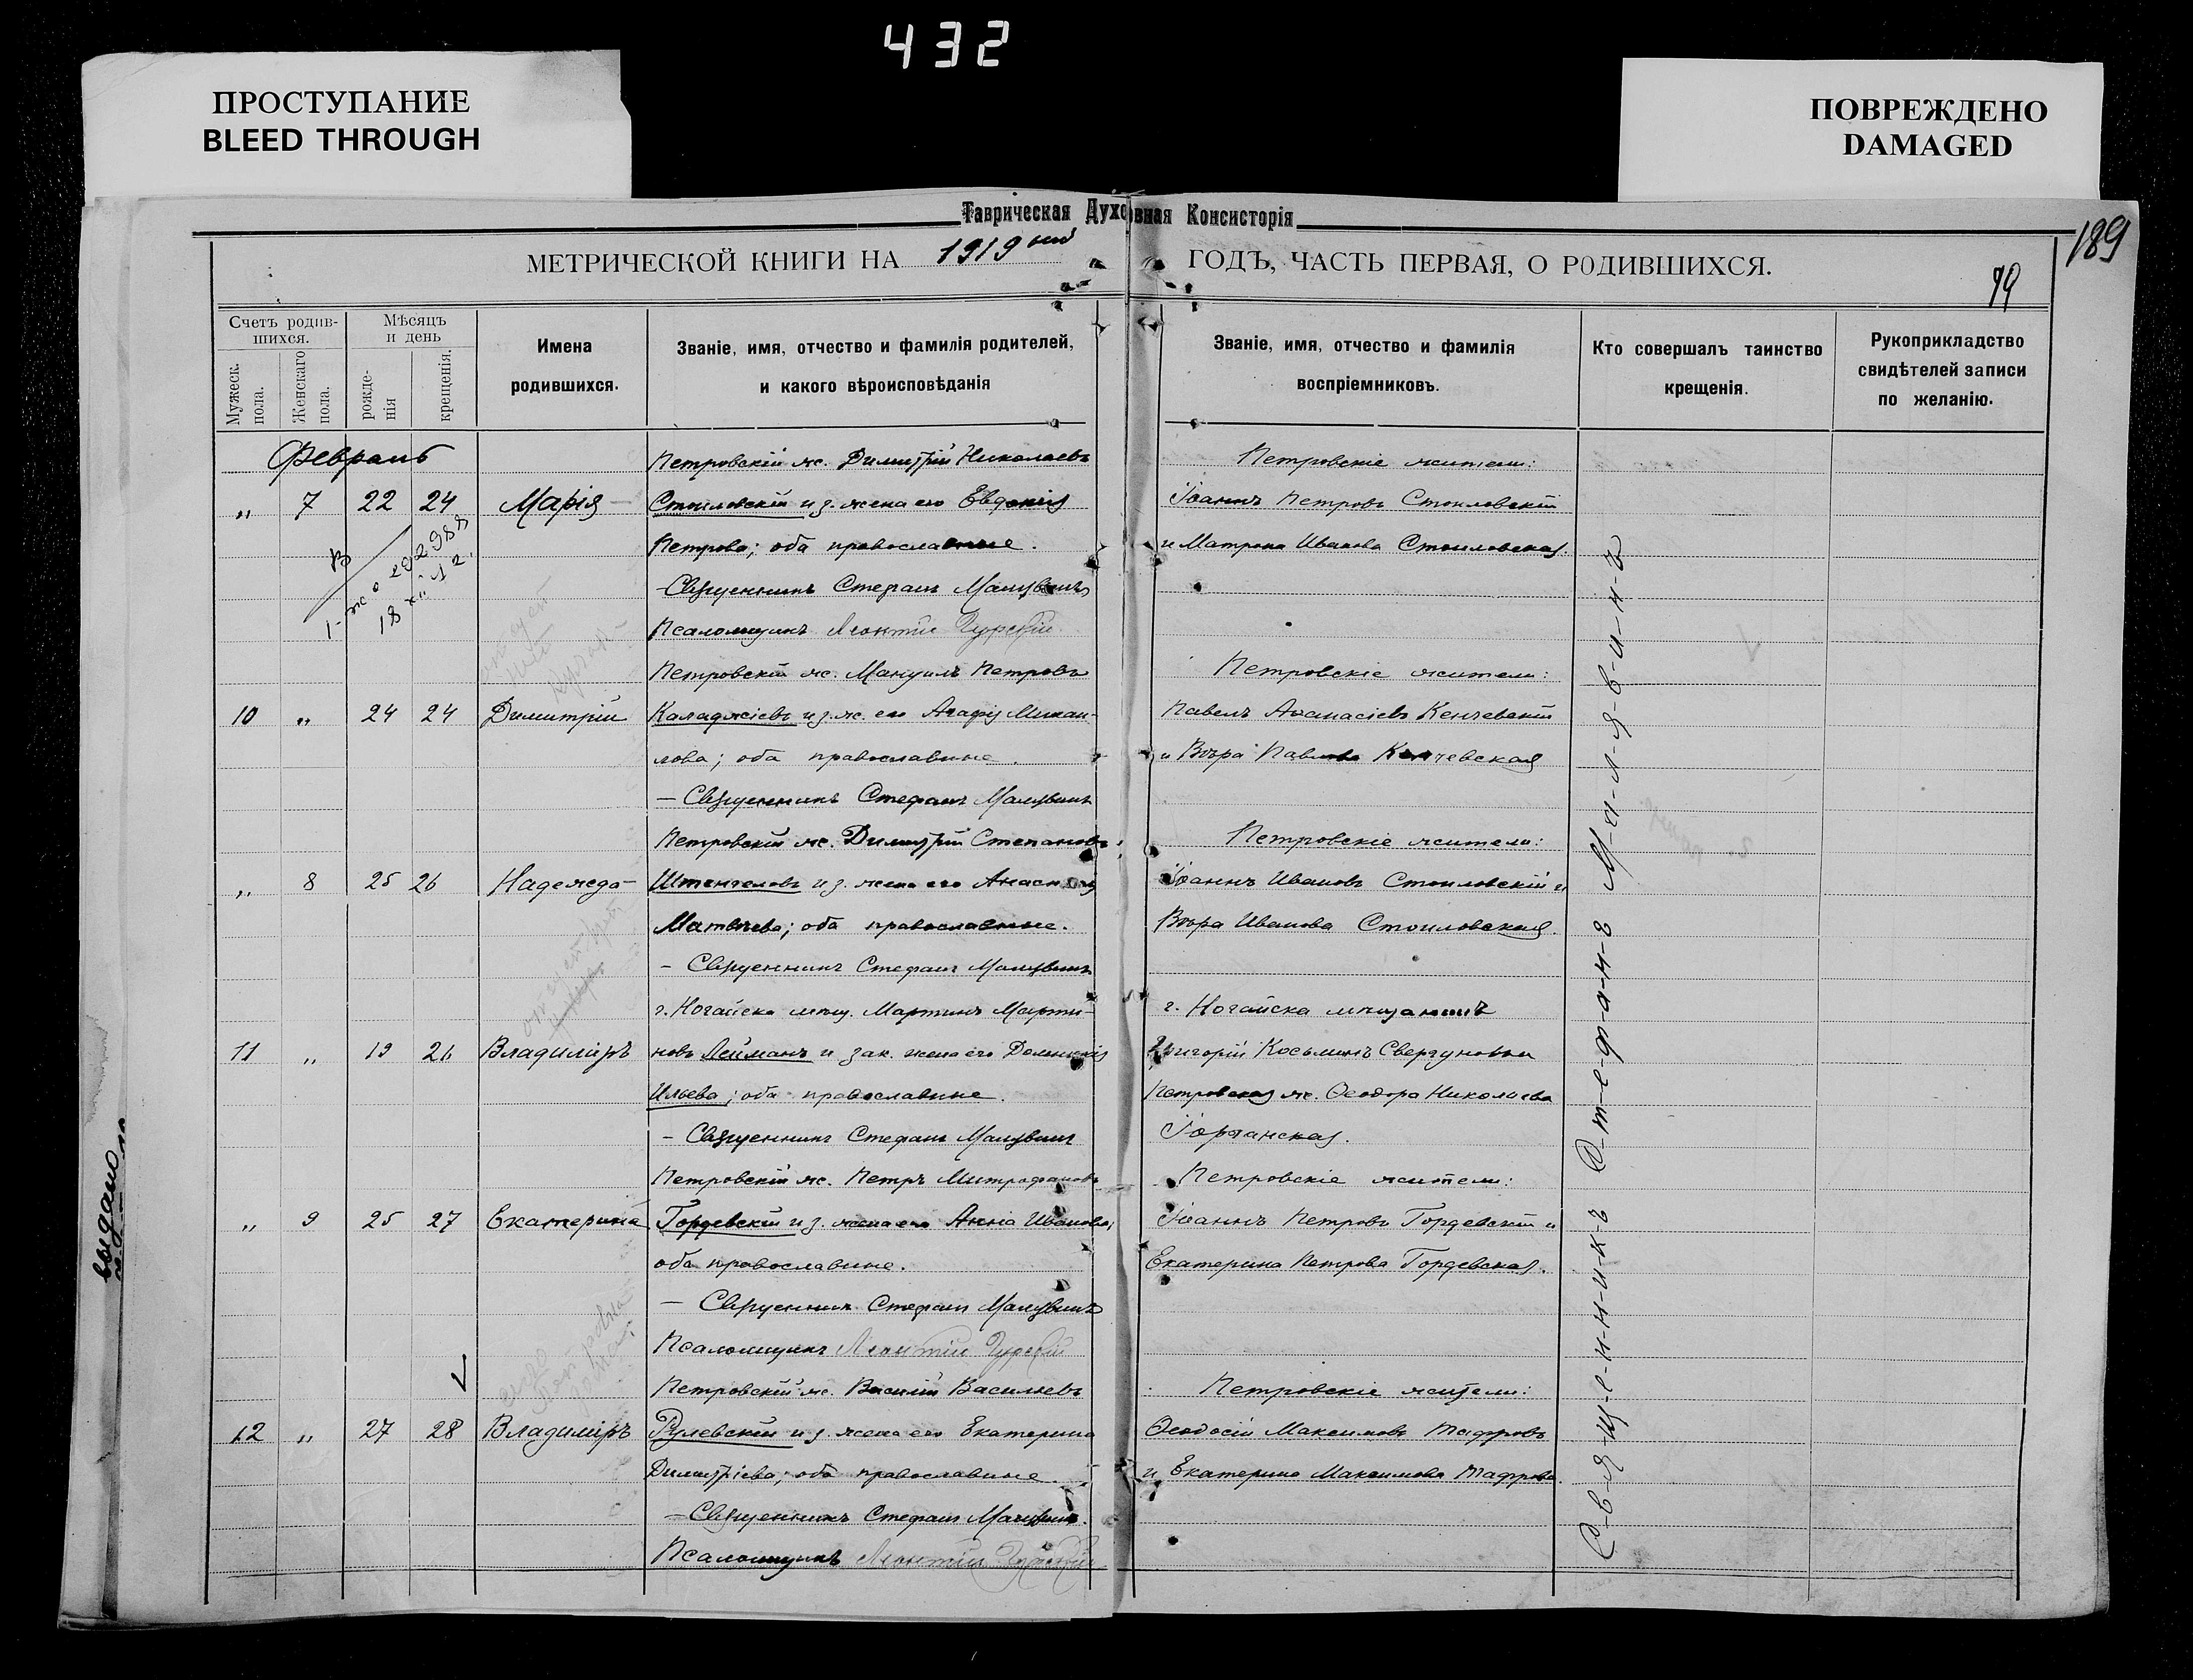 432
ПРОСТУПАНИЕ
BLEED THROUGH
ПОВРЕЖДЕНО
DAMAGED
Таврическая Духовная Консисторія
189
МЕТРИЧЕСКОЙ КНИГИ НА 1919 ый ГОДЪ, ЧАСТЬ ПЕРВАЯ, О РОДИВШИХСЯ.
79
Счетъ родив-
шихся.
Мужеск. пола.
Женскаго пола.
Мѣсяцъ
и день
рожде-
нія
крещенія.
Имена
родившихся.
Званіе, имя, отчество и фамилія родителей,
и какого вѣроисповѣданія
Званіе, имя, отчество и фамилія
воспріемниковъ.
Кто совершалъ таинство
крещенія.
Рукоприкладство
свидѣтелей записи
по желанію.
Февраль
Петровскій ж. Димитрій Николаевъ
Петровскіе жители:
„ 7 22 24 Марія
Стоиловскій и з. жена его Евдокія
Іоаннъ Петровъ Стоиловскій
Петрова; оба православные.
и Матрона Иванова Стоиловская.
Священникъ Стефанъ
Псаломщикъ Леонтій
Петровскій ж. Мануилъ Петровъ
Петровскіе жители:
10 „ 24 24 Димитрій
Каладжіевъ и з. ж. его Агафія Михаи-
Павелъ Аѳанасіевъ Кенчевскій
лова; оба православные.
и Вѣра Павлова Кенчевская
— Священникъ Стефанъ
Петровскій ж. Димитрій Степановъ
Петровскіе жители:
„ 8 25 26 Надежда
Штенгеловъ и з. жена его
Іоаннъ Ивановъ Стоиловскій и
Матвѣева; оба православные.
Вѣра Иванова Стоиловская.
— Священникъ Стефанъ
г. Ногайска мѣщ. Мартинъ Марти-
г. Ногайска мѣщанинъ
11 „ 19 26 Владиміръ
новъ Лейманъ и зак. жена его Домникія
Григорій Косьминъ
Ильева; оба православные.
Петровская ж. Ѳеодора Николаева
— Священникъ Стефанъ
Петровскій ж. Петръ Митрофановъ
Петровскіе жители:
„ 9 25 27 Екатерина
Гордевскій и з. жена его Анна Иванова;
Іоаннъ Петровъ Гордевскій и
оба православные.
Екатерина Петрова Гордевская.
— Священникъ Стефанъ
Псаломщикъ Леонтій
Петровскій ж. Василій Васильевъ
Петровскіе жители:
12 „ 27 28 Владиміръ
Рулевскій и з. жена его Екатерина
Ѳеодосій Максимовъ
Димитріева; оба православные.
и Екатерина Максимова
— Священникъ Стефанъ
Псаломщикъ Леонтій
С-в-я-щ-е-н-н-и-к-ъ С-т-е-ф-а-н-ъ М-а-л-я-в-и-н-ъ
выдано